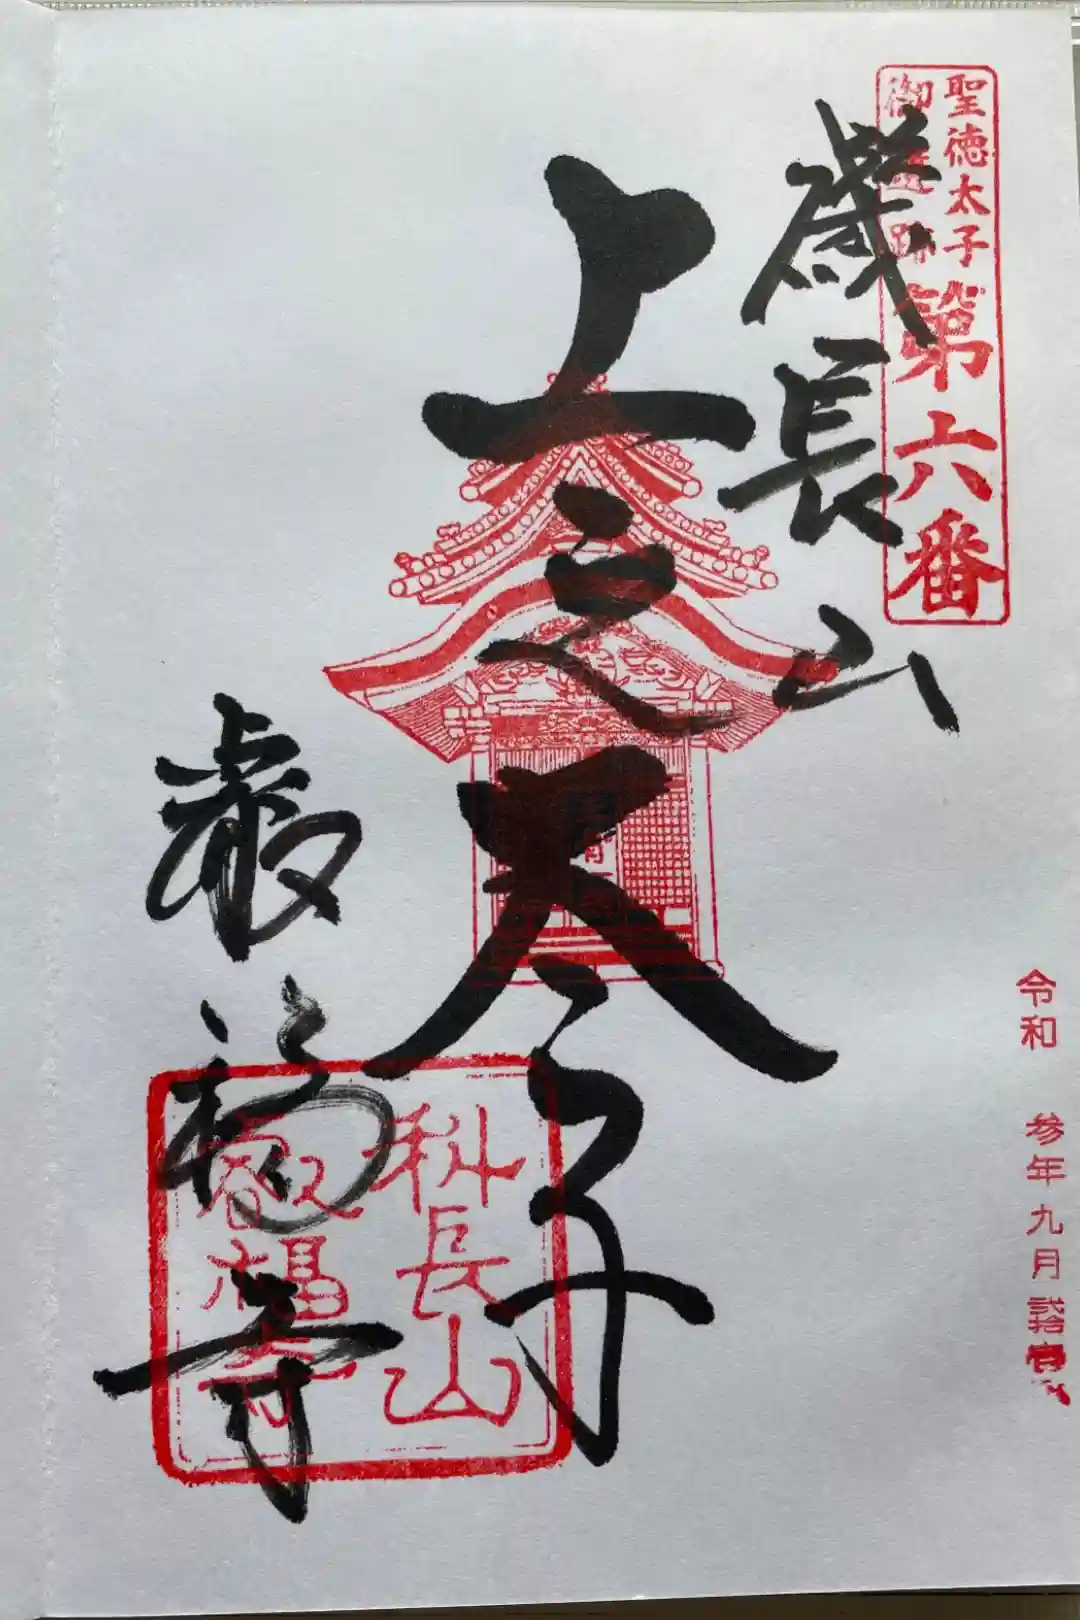 聖徳太子
御遺跡
第六番
磯長山
上之太子
叡福寺
科長山
叡福寺
令和 参年九月弐拾